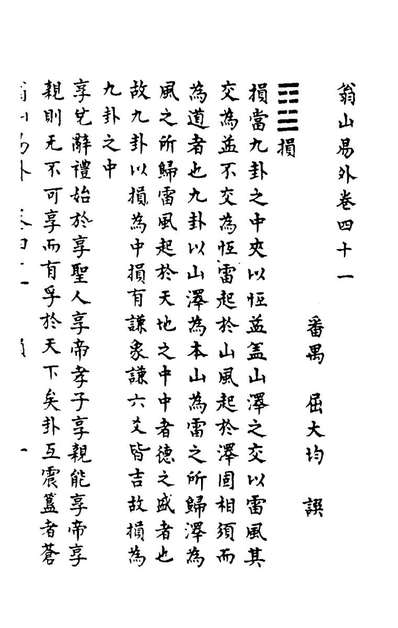 翁山易外卷四十一
番禺 屈大均 譔
䷨損
損當九卦之中夾以恒益盖山澤之交以雷風其
交為益不交為恒雷起於山風起於澤固相須而
為道者也九卦以山澤為本山為雷之所歸澤為
風之所歸雷風起於天地之中中者德之盛者也
故九卦以損為中損有謙象謙六爻皆吉故損為
九卦之中
享先辭禮始於享聖人享帝孝子享親能享帝享
親則无不可享而有孚於天下矣卦互震簋者蒼
翁山易外 卷四十一 損 一